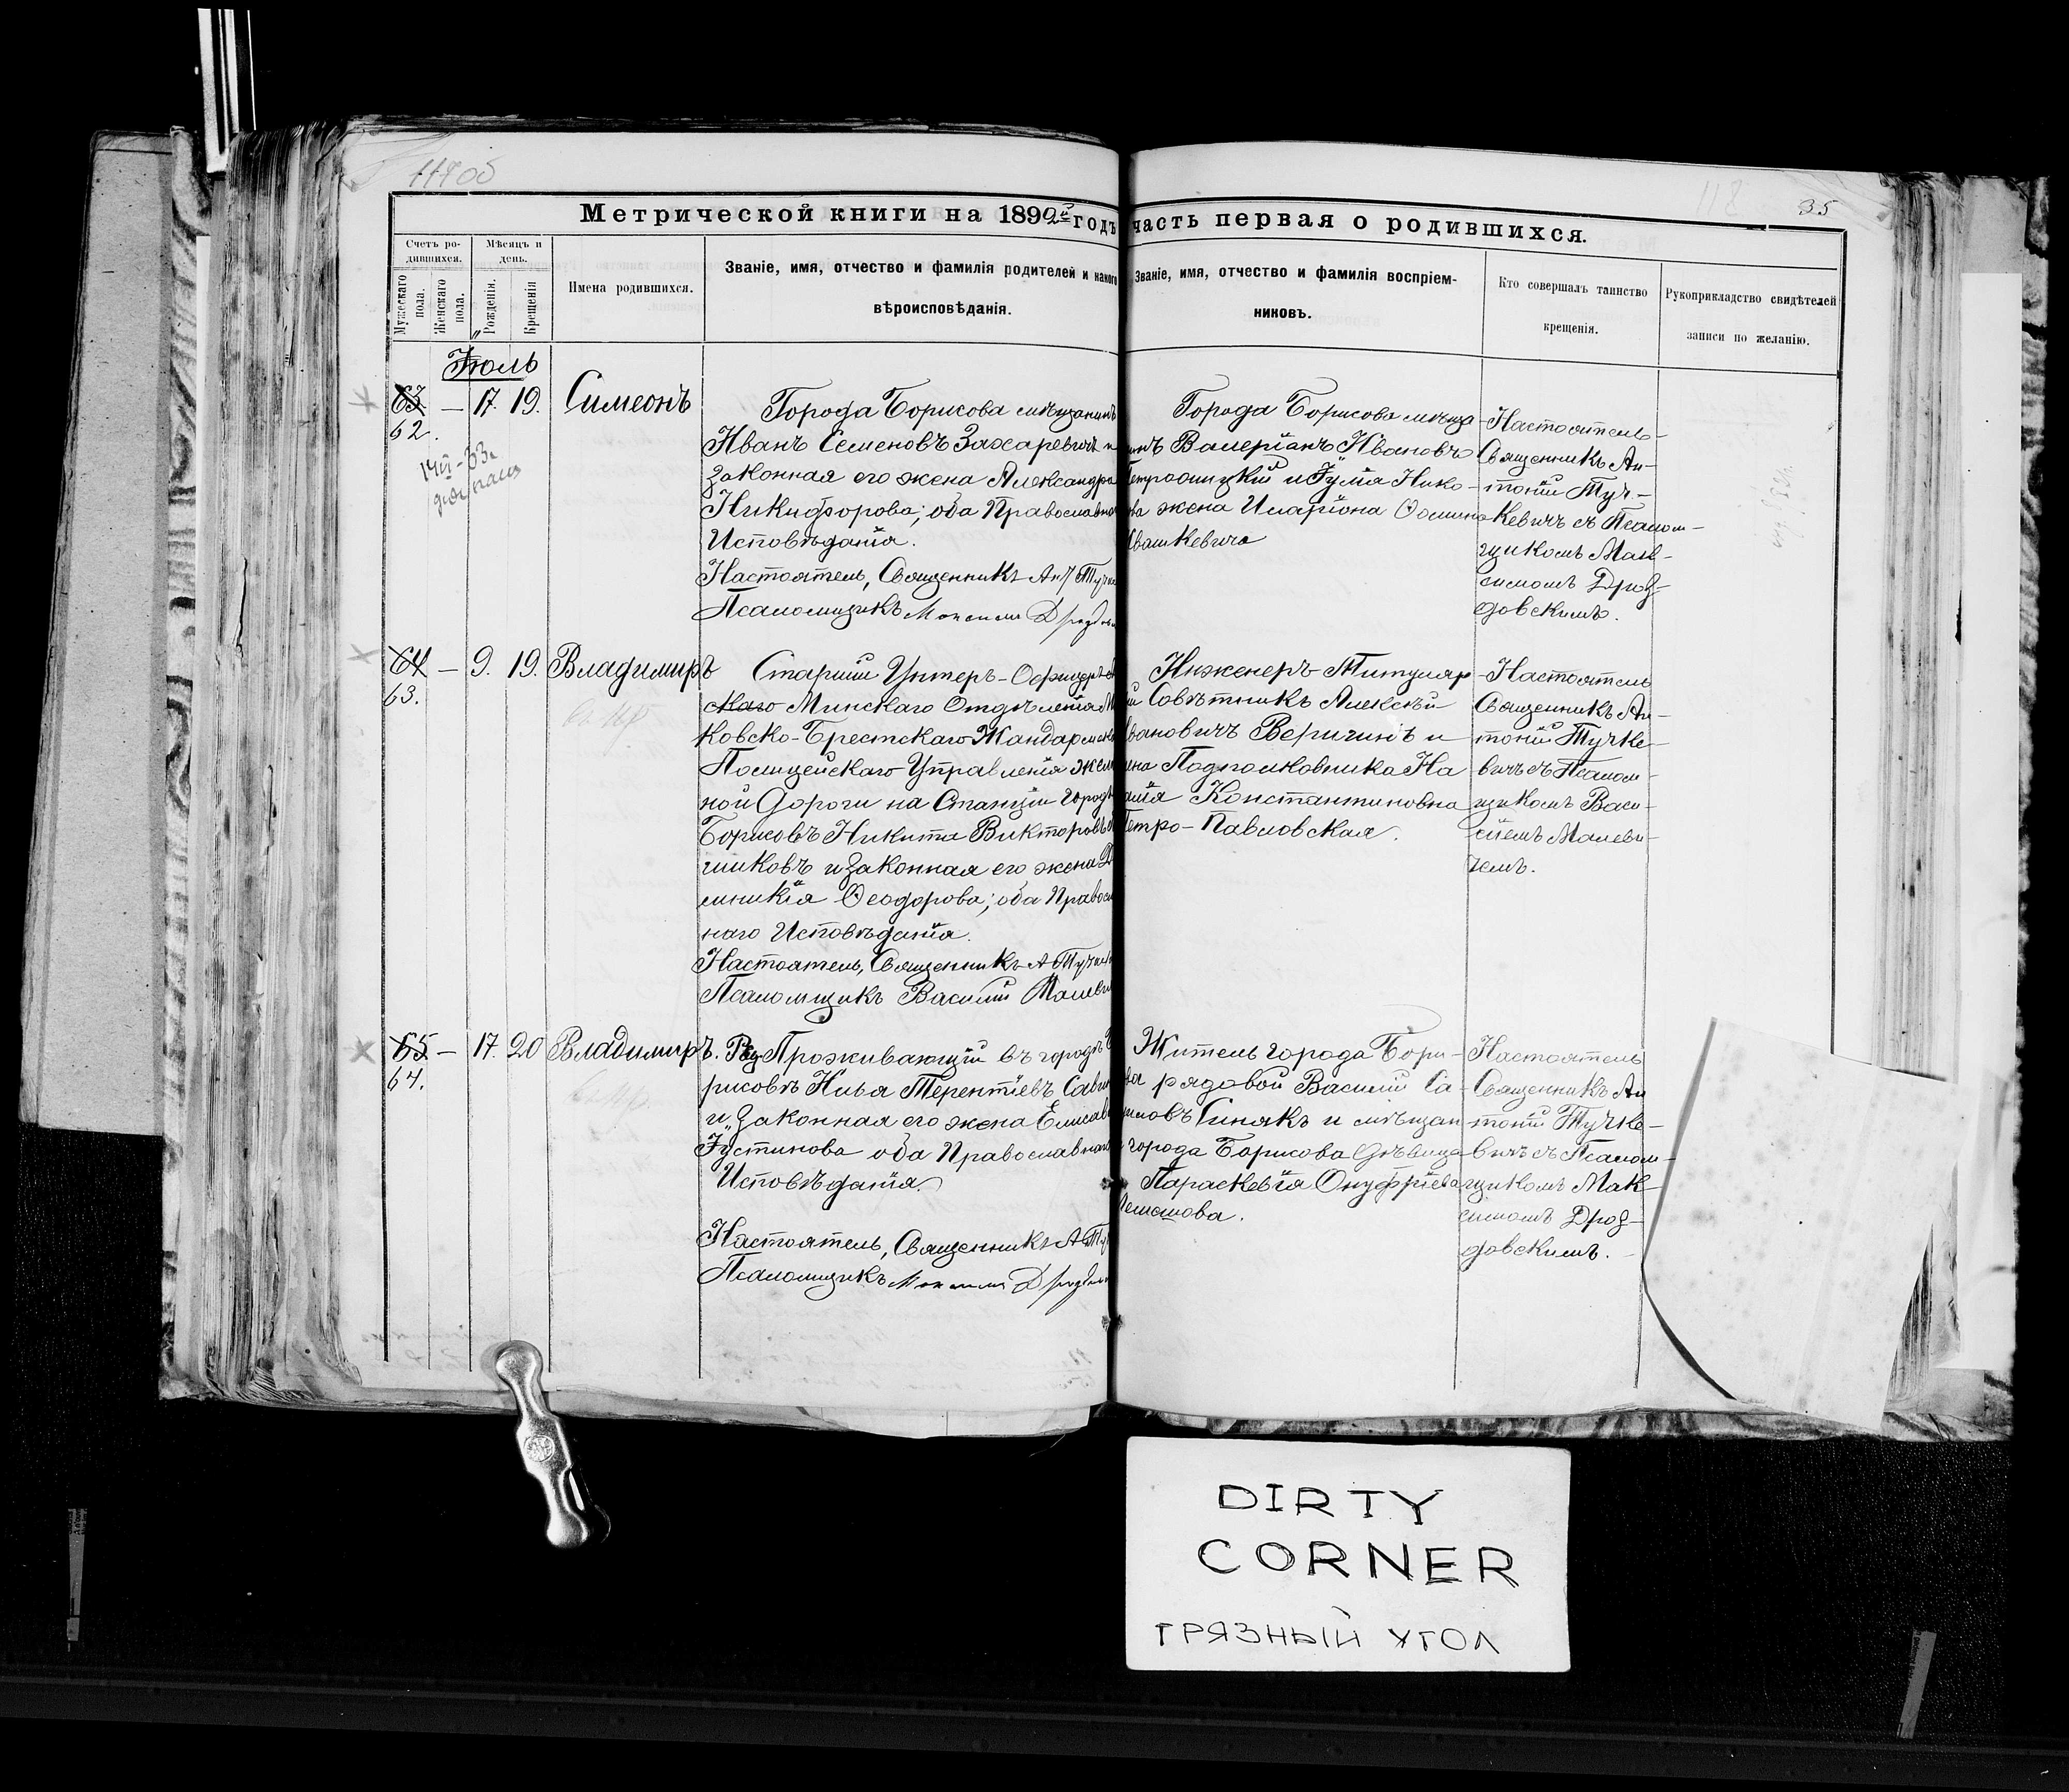 117об
118
35
Метрической книги на 1892й годъ часть первая о родившихся.
Счетъ ро-
дившихся.
Мужескаго пола.
Женскаго пола.
Мѣсяцъ и
день.
Рожденія.
Крещенія
Имена родившихся.
Званіе, имя, отчество и фамилія родителей и какого
вѣроисповѣданія.
Званіе, имя, отчество и фамилія воспріем-
никовъ.
Кто совершалъ таинство
крещенія.
Рукоприкладство свидѣтелей
записи по желанію.
Іюль
63
62.
—
17. 19.
Симеонъ
Города Борисова мѣщанинъ
Иванъ Семеновъ Захаревичъ и
законная его жена Александра
Никифорова; оба Православна
Исповѣданія.
Настоятель, Священникъ Ант Тучк
Псаломщикъ Максимъ Дроздов
Города Борисова мѣща
нинъ Валеріанъ Ивановъ
и Іулія Нико-
ва жена Иларіона Ѳомина
Ивашкевича
Настоятель
Священникъ Ан-
тоній Туч-
кевичъ съ Псалом-
щикомъ Мак-
симомъ Дроз-
довскимъ.
64
63.
—
9. 19.
Владимиръ
Старшій Унтеръ-Офицеръ
скаго Минскаго Отдѣленія М
ковско-Брестскаго Жандармск
Полицейскаго Управленія жел
ной Дороги на Станціи Городъ
Борисовъ Никита Викторовъ
чиковъ и законная его жена
мникія Ѳеодорова; оба Правос
наго Исповѣданія.
Настоятель, Священникъ А Тучк
Псаломщикъ Василій Малеви
Инженеръ-Титуляр
й Совѣтникъ Алексѣй
Ивановичъ Веригинъ и
жена Подполковника На
алія Константиновна
Петро-Павловская.
Настоятель
Священникъ Ан-
тоній Тучке-
вичъ съ Псалом-
щикомъ Васи-
ліемъ Малеви-
чемъ.
65.
64.
—
17. 20
Владимиръ.
Проживающій въ городѣ
рисовѣ Илья Терентіевъ Сави
и законная его жена Елисав
Іустинова оба Православна
Исповѣданія.
Настоятель, Священникъ А Ту
Псаломщикъ Максимъ Дроздов
Житель города Бори-
ва рядовой Василій Са-
Синякъ и мѣщан
города Борисова Дѣвица
Параскевія Онуфріева
Настоятель
Священникъ Ан
тоній Тучке-
вичъ съ Псалом-
щикомъ Мак-
симомъ Дроз-
довскимъ.
DIRTY
CORNER
ГРЯЗНЫЙ УГОЛ